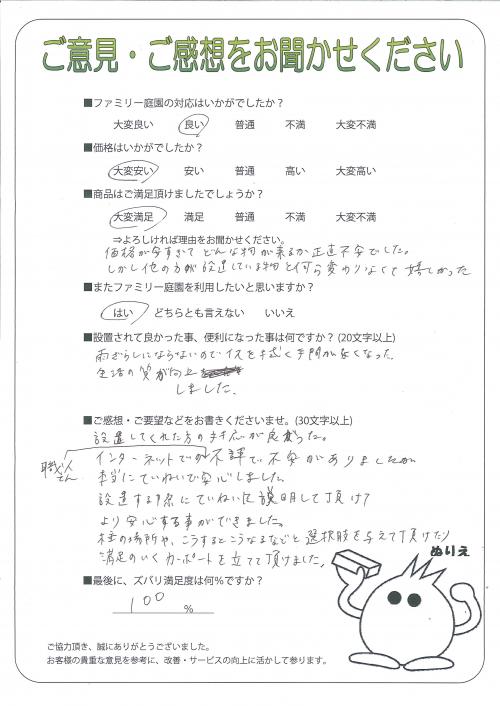 ご意見・ご感想をお聞かせください
■ファミリー庭園の対応はいかがでしたか?
大変良い 良い 普通 不満 大変不満
■価格はいかがでしたか?
大変安い 安い 普通 高い 大変高い
■商品はご満足頂けましたでしょうか?
大変満足 満足 普通 不満 大変不満
⇒よろしければ理由をお聞かせください。
価格が安すぎてどんな物が来るか正直不安でした。
しかし他の方が設置している物と何ら変わりなくて嬉しかった
■またファミリー庭園を利用したいと思いますか?
はい どちらとも言えない いいえ
■設置されて良かった事、便利になった事は何ですか?(20文字以上)
雨ざらしにならないのでイスを拭く手間が無くなった。
生活の質が向上
しました。
■ご感想・ご要望などをお書きくださいませ。(30文字以上)
設置してくれた方の対応が良かった。
職人さん
インターネットでの不評で不安がありましたが
本当にていねいで安心しました。
設置する際にていねいに説明して頂け
より安心する事ができました。
柱の場所や、こうするとこうなるなどと選択肢を与えて頂けたり
満足のいくカーポートを立てて頂けました。
ぬりえ
■最後に、ズバリ満足度は何%ですか?
100 %
ご協力頂き、誠にありがとうございました。
お客様の貴重な意見を参考に、改善・サービスの向上に活かして参ります。